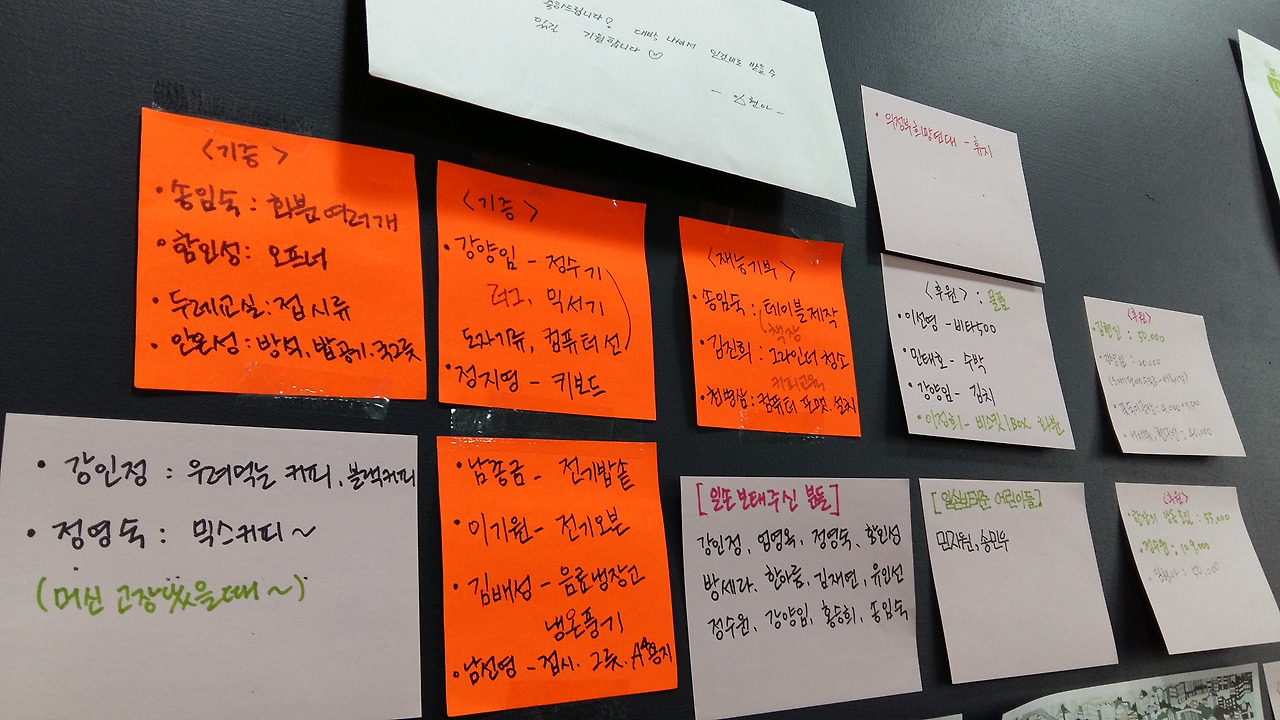 축하드립니다! 대박 나셔서 인건비도 받을 수
있길 기원합니다 ♡
<기증>
• 송임숙 : 화분 여러개
• 함인성 : 오프너
• 두레교실 : 접시류
• 안완성 : 방석, 밥공기, 국그릇
<기증>
• 강양임 - 정수기
믹서기
도자기류, 컴퓨터선
• 정지영 - 키보드
<재능기부>
• 송임숙 : 테이블제작
책장
• 김진희 : 그라인더 청소
커피교육
• 천병상 : 컴퓨터 포맷, 설치
• 의성부희망연대 - 휴지
<후원> : 물품
• 이선영 - 비타500
• 민태호 - 수박
• 강양임 - 김치
• 이정희 - 비스킷1BOX 화분
<후원>
: 50,000
• 강인정 : 우려먹는 커피, 블랙커피
• 정영숙 : 믹스커피~
(머신 고장났을때~)
• 남종금 - 전기밥솥
• 이기원 - 전기오븐
• 김배성 - 음료냉장고
냉온풍기
• 남선영 - 접시, 그릇, A4용지
[일손보태주신 분들]
강인정, 엄영옥, 정영숙, 함인성
방세라, 한아름, 김재연, 유인선
정수원, 강양임, 홍승희, 송임숙
[일손보태준 어린이들]
민지원, 송민우
<후원>
: 55,000
: 109,000
: 50,000